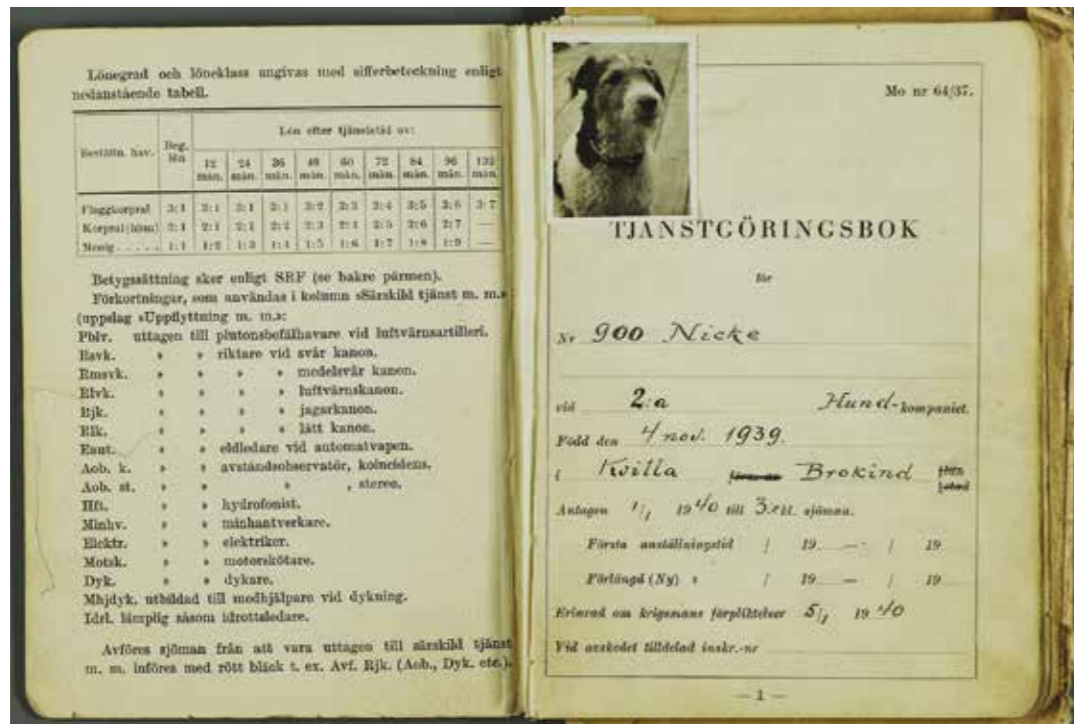 Lönegrad och löneklass angivas med sifferbeteckning enligt
nedanstående tabell.
Beställn. hav. Beg. lön Lön efter tjänstetid av:
12 mån. 24 mån. 36 mån. 48 mån. 60 mån. 72 mån. 84 mån. 96 mån. 132 mån.
Flaggkorpral 3:1 3:1 3:1 3:1 3:2 3:3 3:4 3:5 3:6 3:7
Korpral 2:1 2:1 2:1 2:2 2:3 2:4 2:5 2:6 2:7 —
Menig 1:1 1:2 1:3 1:4 1:5 1:6 1:7 1:8 1:9 —
Betygssättning sker enligt SRF (se bakre pärmen).
Förkortningar, som användas i kolumn »Särskild tjänst m. m.»
(uppslag »Uppflyttning m. m.»:
Pblv. uttagen till plutonsbefälhavare vid luftvärnsartilleri.
Rsvk. » » riktare vid svår kanon.
Rmsvk. » » » » medelsvår kanon.
Rlvk. » » » » luftvärnskanon.
Rjk. » » » » jagarkanon.
Rlk. » » » » lätt kanon.
Eaut. » » eldledare vid automatvapen.
Aob. k. » » avståndsobservatör, koincidens.
Aob. st. » » » , stereo.
Hft. » » hydrofonist.
Minhv. » » minhantverkare.
Elektr. » » elektriker.
Motsk. » » motorskötare.
Dyk. » » dykare.
Mhjdyk. utbildad till medhjälpare vid dykning.
Idrl. lämplig såsom idrottsledare.
Avföres sjöman från att vara uttagen till särskild tjänst
m. m. införes med rött bläck t. ex. Avf. Rjk. (Aob., Dyk. etc.).
Mo nr 64/37.
TJÄNSTGÖRINGSBOK
för
Nr 900 Nicke
vid 2:a Hund-kompaniet.
Född den 4/nov. 1939.
i Kvilla Brokind
Antagen 1/1 1940 till 3.kl. sjöman.
Första anställningstid / 19 — / 19
Förlängd (Ny) » / 19 — / 19
Erinrad om krigsmans förpliktelser 5/1 1940
Vid avskedet tilldelad inskr.-nr
— 1 —